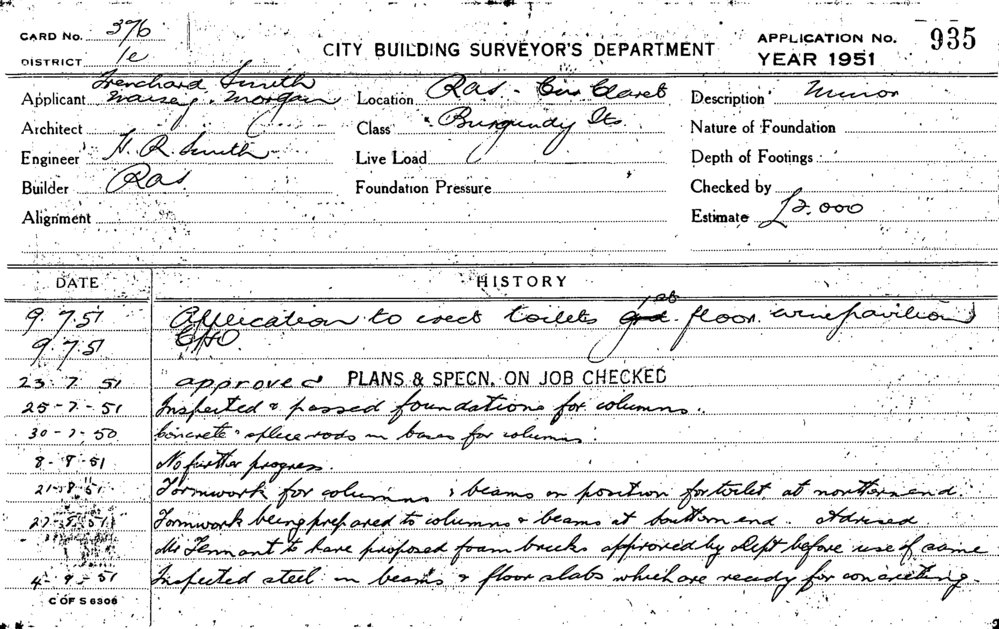 CARD No. 376
DISTRICT 1e
CITY BUILDING SURVEYOR'S DEPARTMENT
APPLICATION No. 935
YEAR 1951
Trenchard Smith
Applicant Maisey. Morgan
Location Ras - Cnr Claret
Description Minor
Architect
Class Burgundy Sts
Nature of Foundation
Engineer H. R. Smith
Live Load
Depth of Footings
Builder Ras
Foundation Pressure
Checked by
Alignment
Estimate £2.000
DATE HISTORY
9.7.51 Application to erect toilets grd. 1st floor. wine pavilion
9.7.51
23.7.51 approved PLANS & SPECN. ON JOB CHECKED
25-7-51 Inspected & passed foundations for columns.
30-7-50 Concrete & splice rods in bases for columns.
8-8-51 No further progress.
21-8-51 Formwork for columns & beams in position for toilet at northern end.
27-8-51 Formwork being prepared to columns & beams at southern end. Advised
Mr Tennant to have proposed foam bricks approved by Dept before use of same
4-9-51 Inspected steel in beams & floor slabs which are ready for concreting.
C OF S 6306